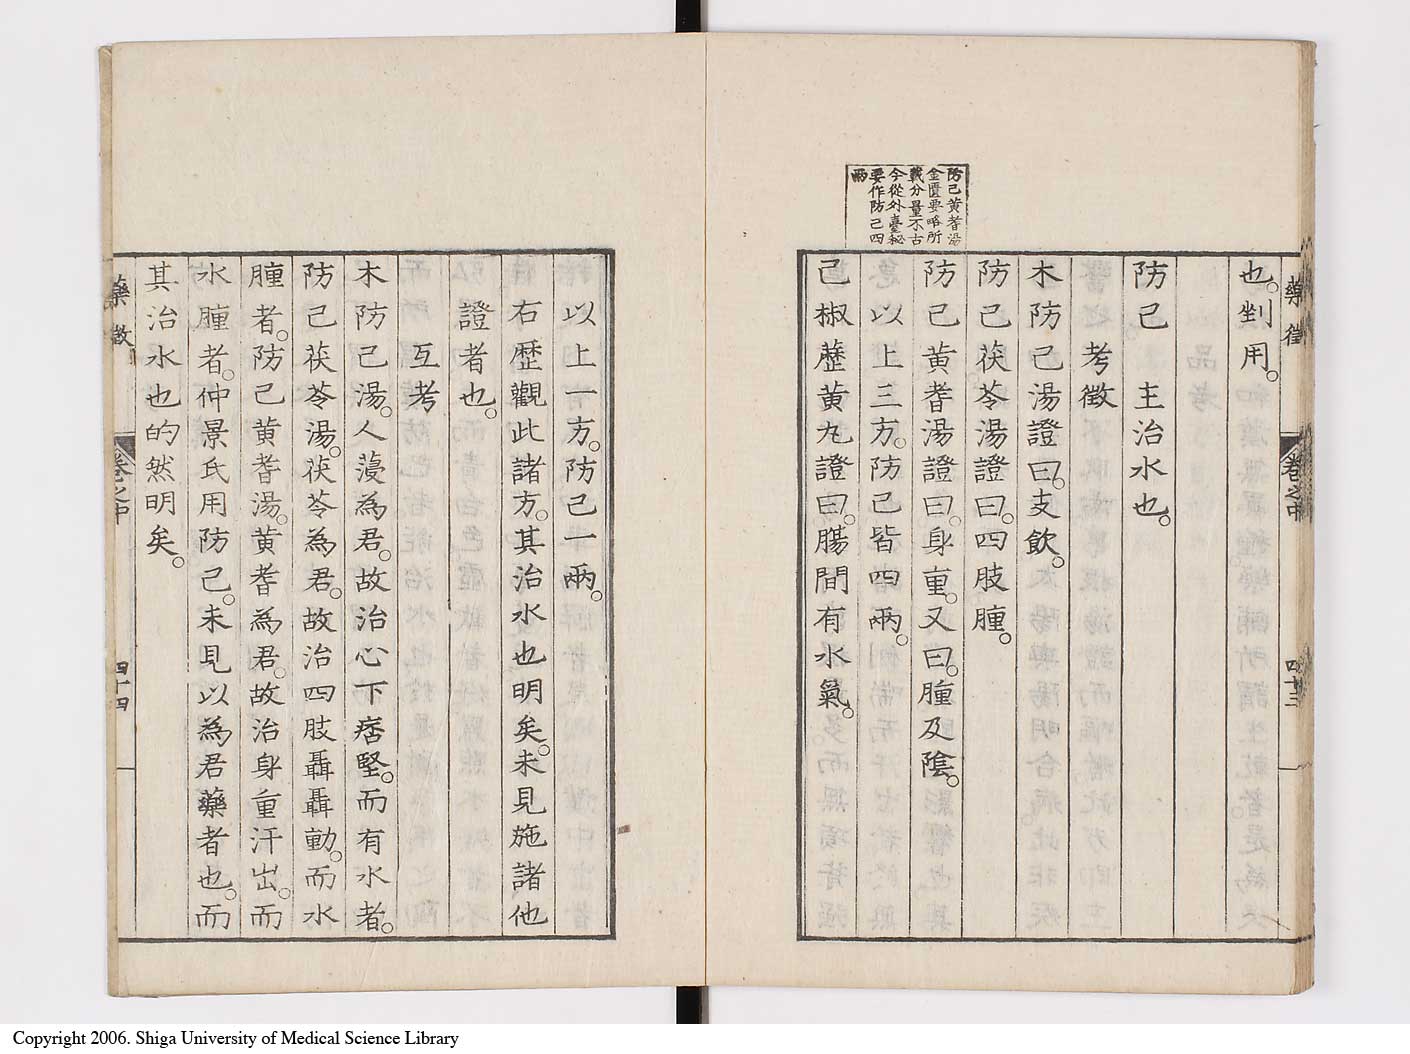 防己黄耆湯
金匱要略所
載分量不古
今從外臺秘
要作防己四
兩
藥徵
卷之中
四十三
也剉用。
防己　主治水也。
考徵
木防己湯證曰。支飲。
防己茯苓湯證曰。四肢腫。
防己黄耆湯證曰。身重。又曰。腫及陰。
以上三方。防己皆四兩。
己椒藶黄丸證曰。腸間有水氣。
以上一方。防己一兩。
右歷觀此諸方。其治水也明矣。未見施諸他
證者也。
互考
木防己湯。人薓為君。故治心下痞堅。而有水者。
防己茯苓湯。茯苓為君。故治四肢聶聶動。而水
腫者。防己黄耆湯。黄耆為君。故治身重汗出。而
水腫者。仲景氏用防己。未見以為君藥者也。而
其治水也的然明矣。
藥徵
卷之中
四十四
Copyright 2006. Shiga University of Medical Science Library